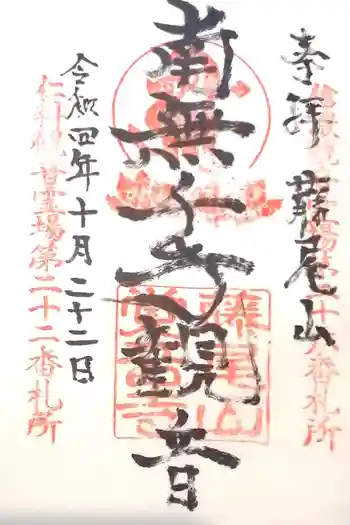 奉拝 藤尾山
南無千手観音
令和四年十月二十二日
藤尾山
覚音寺
番札所
観音霊場第二十二番札所